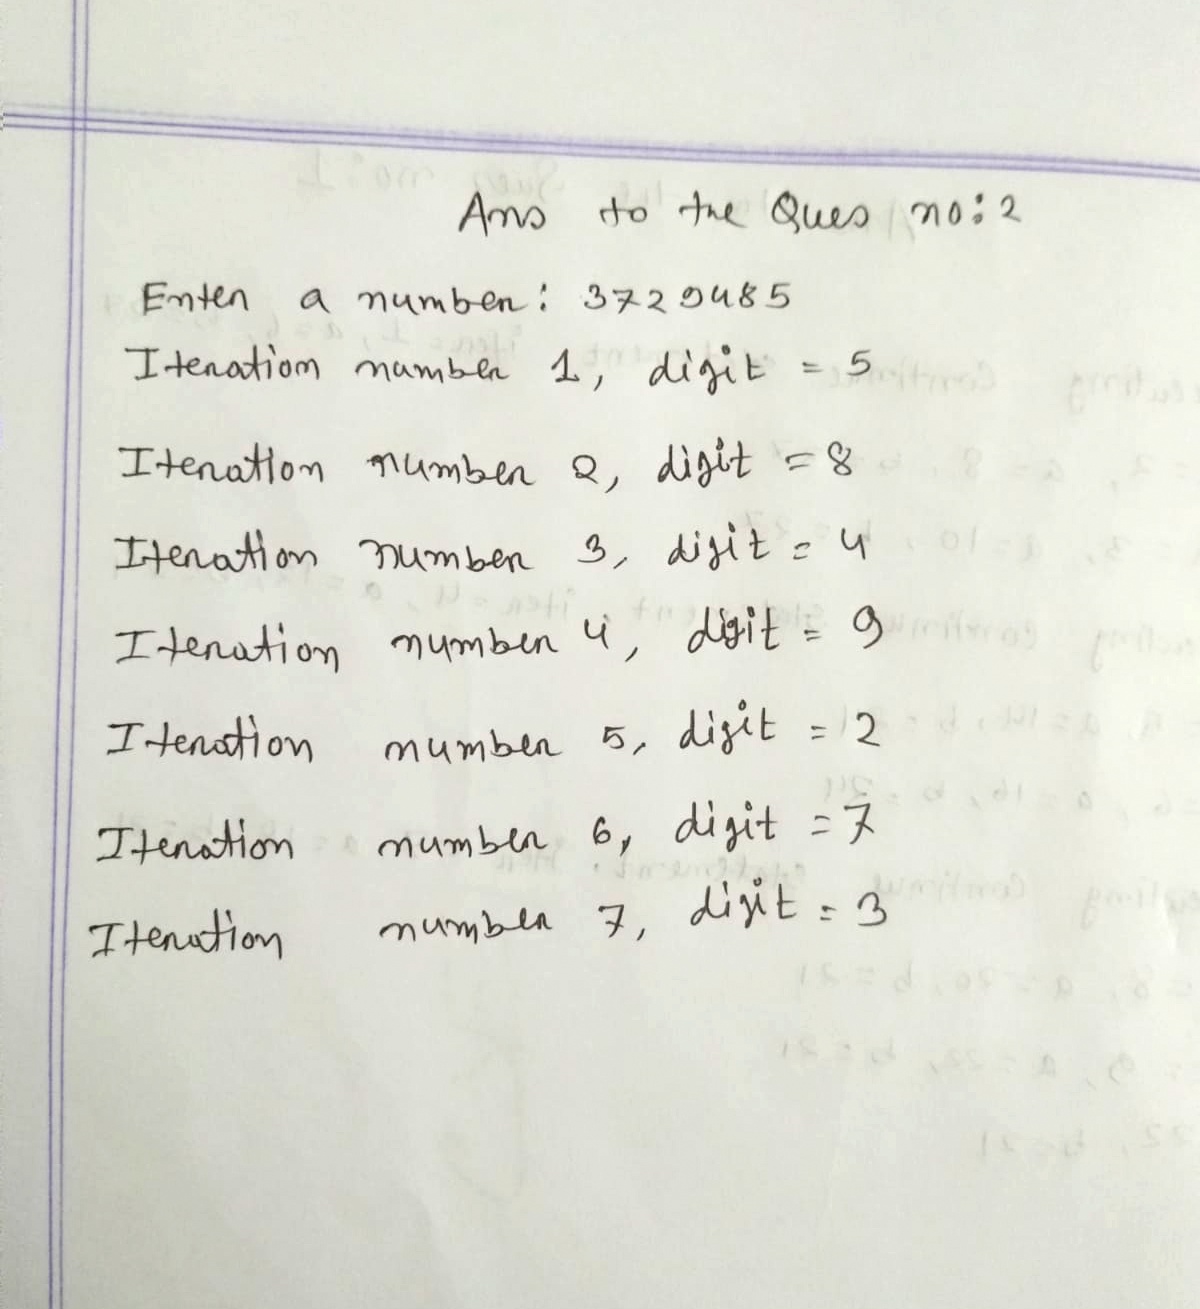 Ans to the Ques no: 2
Enter a number: 3729485
Iteration number 1, digit = 5
Iteration number 2, digit = 8
Iteration number 3, digit = 4
Iteration number 4, digit = 9
Iteration number 5, digit = 2
Iteration number 6, digit = 7
Iteration number 7, digit = 3